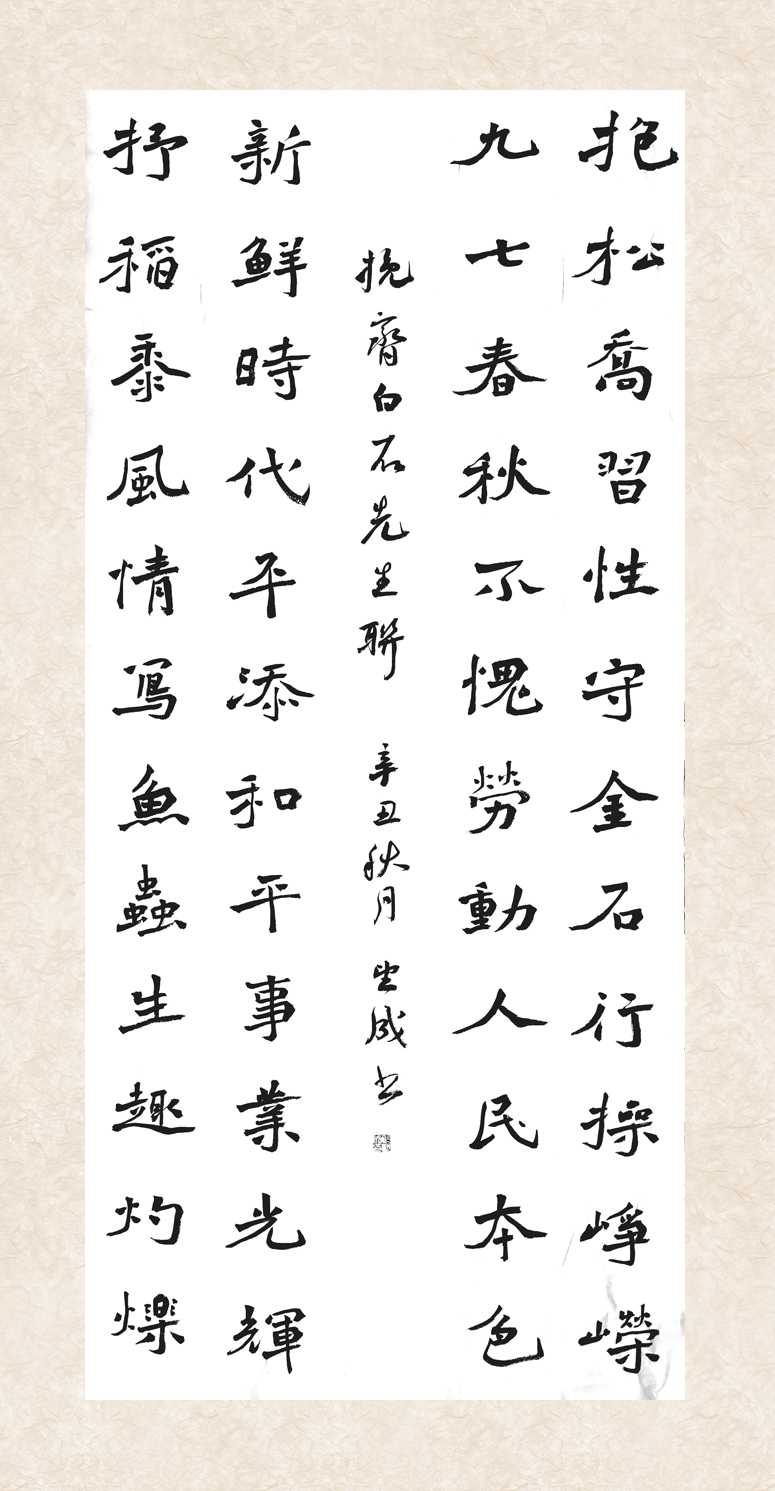 抱松喬習性守金石行操崢嶸
九七春秋不愧勞動人民本色
抒稻黍風情寫魚蟲生趣灼爍
新鮮時代平添和平事業光輝
挽齊白石先生聯 辛丑秋月 成书